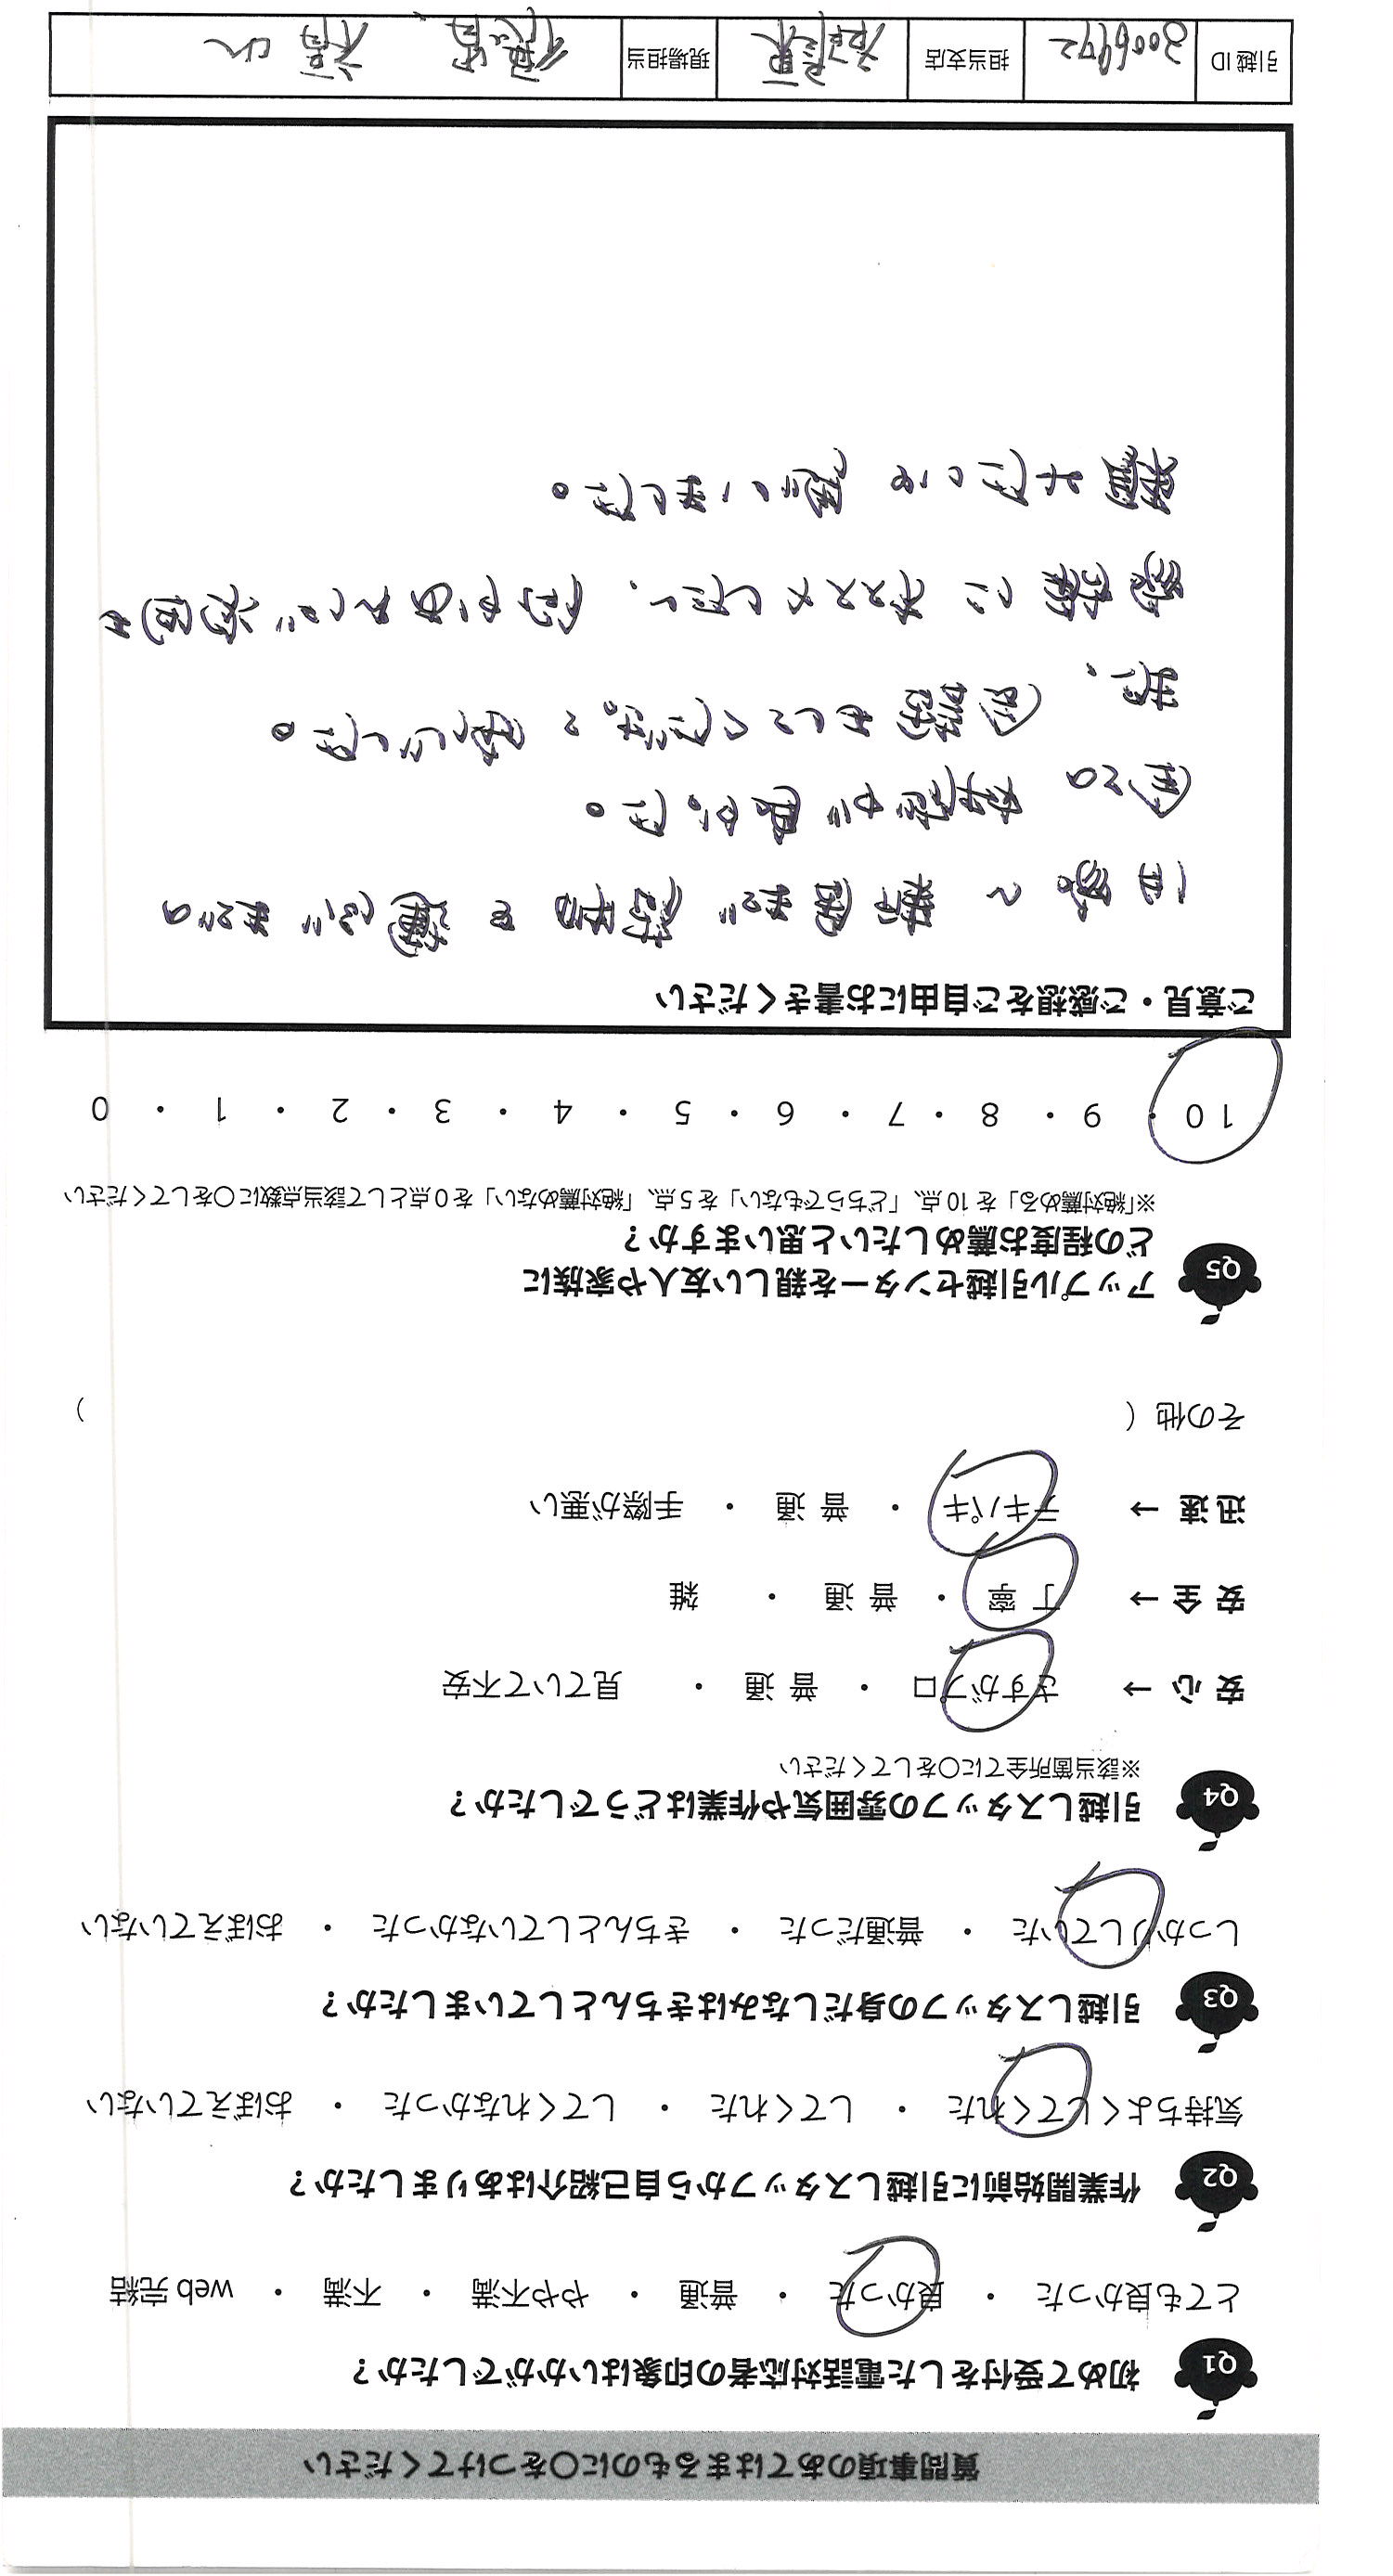 質問事項のあてはまるものに○をつけてください
Q1 初めて受付をした電話対応者の印象はいかがでしたか？
とても良かった ・ 良かった ・ 普通 ・ やや不満 ・ 不満 ・ web完結
Q2 作業開始前に引越しスタッフから自己紹介はありましたか？
気持ちよくしてくれた ・ してくれた ・ してくれなかった ・ おぼえていない
Q3 引越しスタッフの身だしなみはきちんとしていましたか？
しっかりしていた ・ 普通だった ・ きちんとしていなかった ・ おぼえていない
Q4 引越しスタッフの雰囲気や作業はどうでしたか？
※該当箇所全てに○をしてください
安心 → さすがプロ ・ 普通 ・ 見ていて不安
安全 → 丁寧 ・ 普通 ・ 雑
迅速 → テキパキ ・ 普通 ・ 手際が悪い
その他（ ）
Q5 アップル引越センターを親しい友人や家族に
どの程度お薦めしたいと思いますか？
※「絶対薦める」を10点、「どちらでもない」を5点、「絶対薦めない」を0点として該当点数に○をしてください
10 ・ 9 ・ 8 ・ 7 ・ 6 ・ 5 ・ 4 ・ 3 ・ 2 ・ 1 ・ 0
ご意見・ご感想をご自由にお書きください
旧家と新居まで荷物を運ぶまでの
間の が良かった。
また、
家族にオススメしたい、何かあれば次回も
頼みたいと思いました。
引越ID 担当支店 現場担当